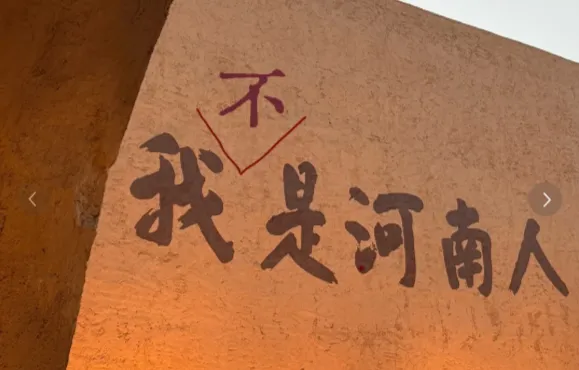 不
我是河南人